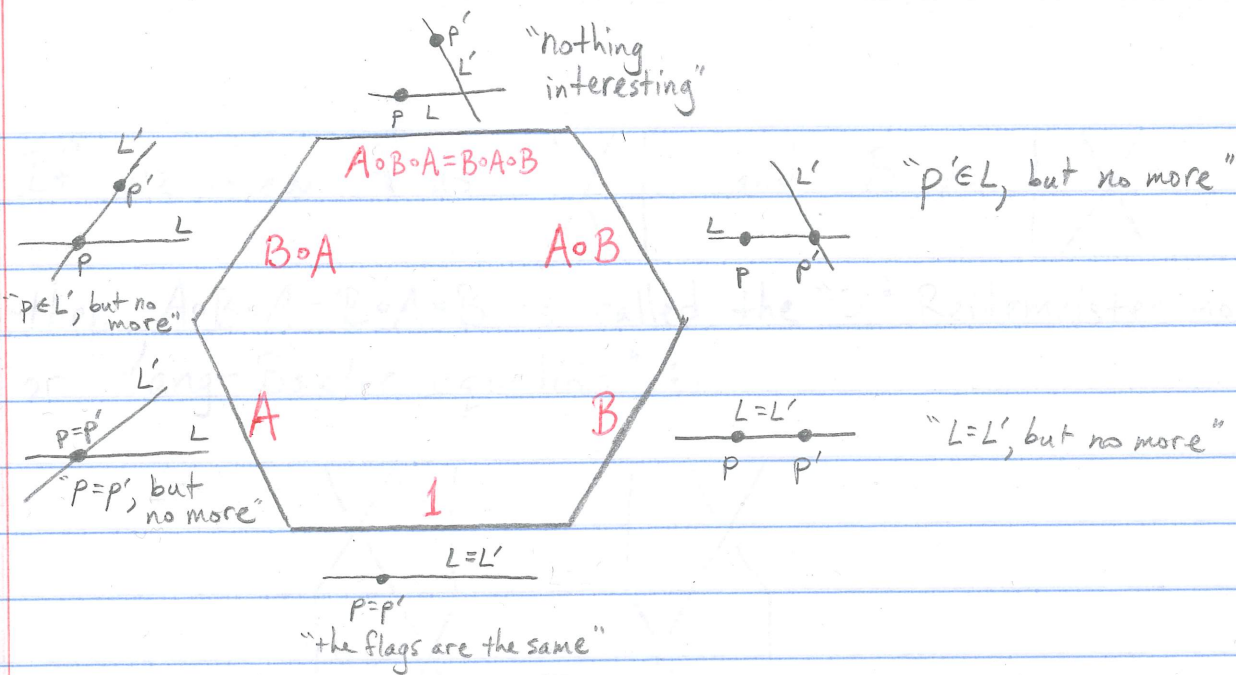 p'
L'
"nothing
interesting"
p L
A∘B∘A=B∘A∘B
L'
p'
L
p
"p∈L', but no
more"
B∘A
A∘B
L'
L
p p'
"p'∈L, but no more"
L'
p=p'
L
"p=p', but
no more"
A
B
L=L'
p p'
"L=L', but no more"
1
L=L'
p=p'
"the flags are the same"